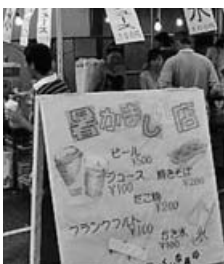 氷
暑かまし店
ビール
¥500
ジュース
¥100
焼きそば
¥200
たこ焼
¥200
フランクフルト
¥100
かき氷
¥100
氷